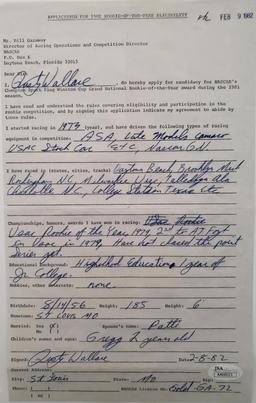 APPLICATION FOR THE ROOKIE-OF-THE-YEAR ELIGIBILITY
FEB 9 1982
Mr. Bill Gazaway
Director of Racing Operations and Competition Director
NASCAR
P.O. Box K
Daytona Beach, Florida 32015
Dear Bill:
I, Rusty Wallace, do hereby apply for candidacy for NASCAR's
Winston Cup Grand National Rookie-of-the-Year award during the 1982
season.
I have read and understand the rules covering eligibility and participation in the
rookie competition, and by signing this application indicate my agreement to abide by
these rules.
I started racing in 1973 (year), and have driven the following types of racing
equipment in competition: ASA, Late Models Camaro
USAC Stock Car, etc, Nascar GN.
I have raced in (states, cities, tracks) Daytona Beach, Brooklyn Mich
Rockingham NC, Milwaukee Wisc, Talladega Ala
Charlotte NC, College Station Texas etc
Championships, honors, awards I have won in racing:
Usac Rookie of the Year 1979, 2nd to AJ Foyt
in 1979, Have not chased the point
series yet.
Educational Background: Highschool Education, 1 year of
Jr College.
Hobbies, other interests: none
Birthdate: 8/14/56 Weight: 185 Height: 6'
Hometown: St Louis MO
Married: Yes (X) Spouse's name: Patti
No ( )
Children's names and ages: Gregg 2 years old
Signed: Rusty Wallace Date: 2-8-82
Current Address:
City: St Louis State: MO Zip:
Phone: ( ) NASCAR License No.